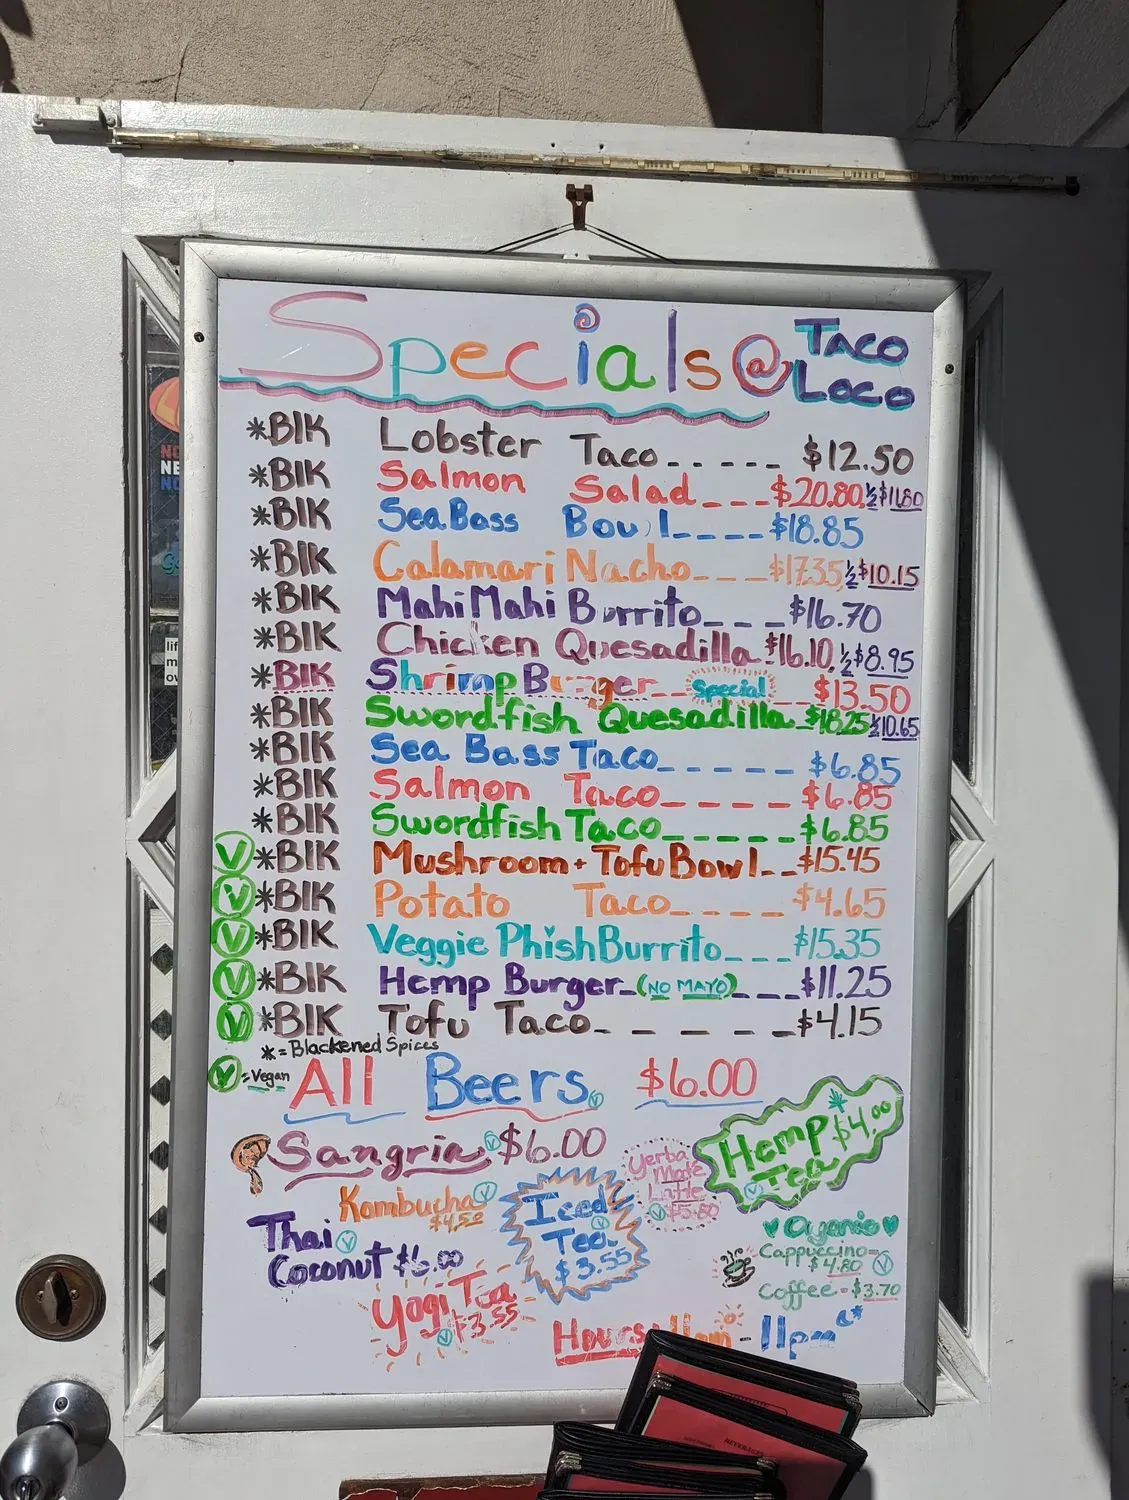 Specials @ TACO LOCO
*BlK Lobster Taco_ _ _ _ _ $12.50
*BlK Salmon Salad_ _ _ $20.80, ½ $11.80
*BlK Sea Bass Bowl_ _ _ _ $18.85
*BlK Calamari Nacho_ _ _ $17.35, ½ $10.15
*BlK Mahi Mahi Burrito_ _ _ $16.70
*BlK Chicken Quesadilla $16.10, ½ $8.95
*BlK Shrimp Burger_ _ Special _ _ $13.50
*BlK Swordfish Quesadilla_ $18.25 ½ 10.65
*BlK Sea Bass Taco_ _ _ _ _ $6.85
*BlK Salmon Taco_ _ _ _ _ $6.85
*BlK Swordfish Taco_ _ _ _ _ $6.85
V *BlK Mushroom + Tofu Bowl_ _ $15.45
V *BlK Potato Taco_ _ _ _ $4.65
V *BlK Veggie Phish Burrito_ _ _ $15.35
V *BlK Hemp Burger_ (NO MAYO)_ _ _ $11.25
V *BlK Tofu Taco_ _ _ _ _ $4.15
* = Blackened Spices
V = Vegan
All Beers V $6.00
Sangria V $6.00
Hemp Tea $4.00 V
Yerba Mate Latte V $5.80
Kombucha V $4.50
Iced Tea V $3.55
Thai V Coconut $6.00
Organic
Cappuccino- $4.80 V
Coffee - $3.70
Yogi Tea V $3.55
Hours 11am - 11pm
BEVERAGES